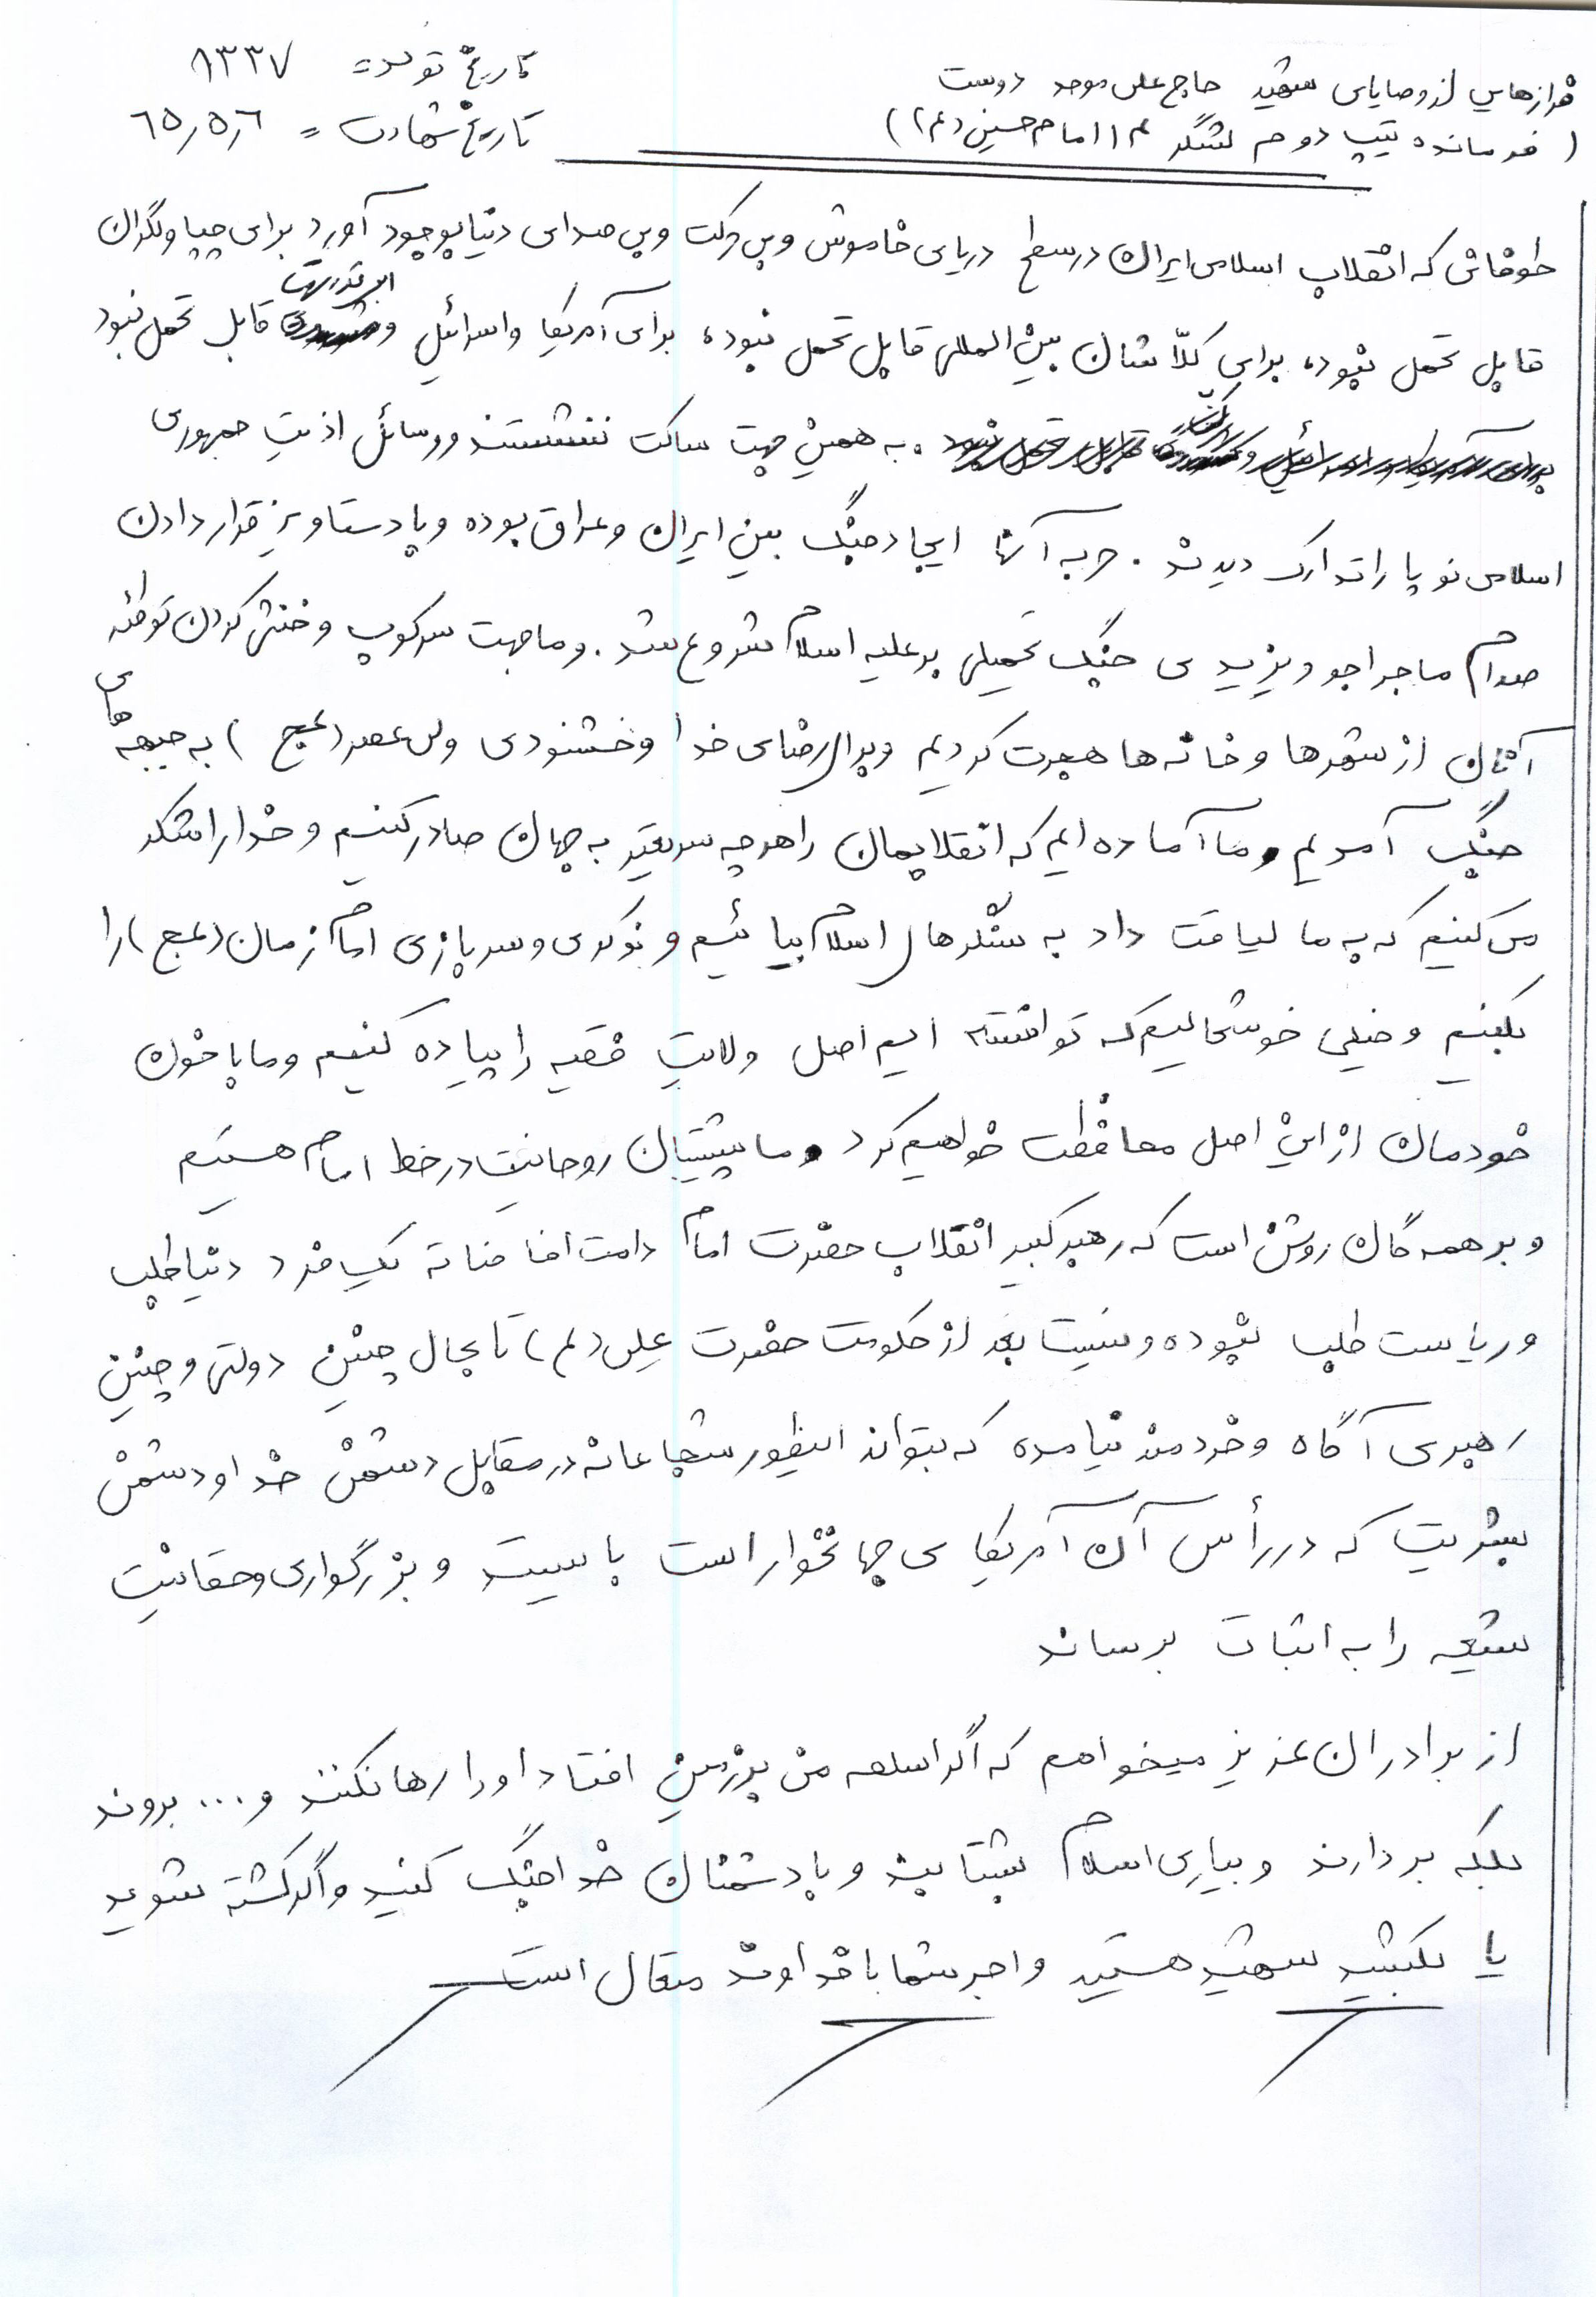 فرازهایی از وصایای شهید حاج علی موحد دوست
(فرمانده تیپ دوم لشگر ۱۴ امام حسین (ع))
تاریخ تولد = ۱۳۳۷
تاریخ شهادت = ٦٥٫٥٫٦
طوفانی که انقلاب اسلامی ایران در سطح دریای خاموش و بی حرکت و بی صدای دنیا بوجود آورد برای چپاولگران
قابل تحمل نبود، برای کلّاشان بین المللی قابل تحمل نبود، برای آمریکا و اسرائیل و ابرقدرتها قابل تحمل نبود
. به همین جهت ساکت ننشستند و وسائل اذیت جمهوری
اسلامی نوپا را تدارک دیدند . حربه آنها ایجاد جنگ بین ایران و عراق بوده و با دستاویز قرار دادن
صدام ماجراجو و یزیدی جنگ تحمیلی بر علیه اسلام شروع شد . و ما جهت سرکوب و خنثی کردن توطئه
آنان از شهرها و خانه ها هجرت کردیم و برای رضای خدا و خشنودی ولی عصر (عج) به جبهه های
جنگ آمدیم و ما آماده ایم که انقلابمان را هرچه سریعتر به جهان صادر کنیم و خدا را شکر
می کنیم که به ما لیاقت داد به سنگرهای اسلام بیائیم و نوکری و سربازی امام زمان (عج) را
بکنیم و خیلی خوشحالیم که توانسته ایم اصل ولایت فقیه را پیاده کنیم و ما با خون
خودمان از این اصل محافظت خواهیم کرد و ما پشتیبان روحانیت در خط امام هستیم
و بر همه گان روشن است که رهبر کبیر انقلاب حضرت امام دامت افاضاته یک فرد دنیا طلب
و ریاست طلب نبوده و نیست بعد از حکومت حضرت علی (ع) تا بحال چنین دولتی و چنین
رهبری آگاه و خردمند نیامده که بتواند اینطور شجاعانه در مقابل دشمن خدا و دشمن
بشریت که در رأس آن آمریکای جهانخوار است بایستد و بزرگواری و حقانیت
شیعه را به اثبات برساند
از برادران عزیز میخواهم که اگر اسلحه من بر زمین افتاد او را رها نکنند و ... بروند
بلکه بردارند و بیاری اسلام بشتابند و با دشمنان خدا جنگ کنید و اگر کشته شوید
یا بکشید شهید هستید و اجر شما با خداوند متعال است